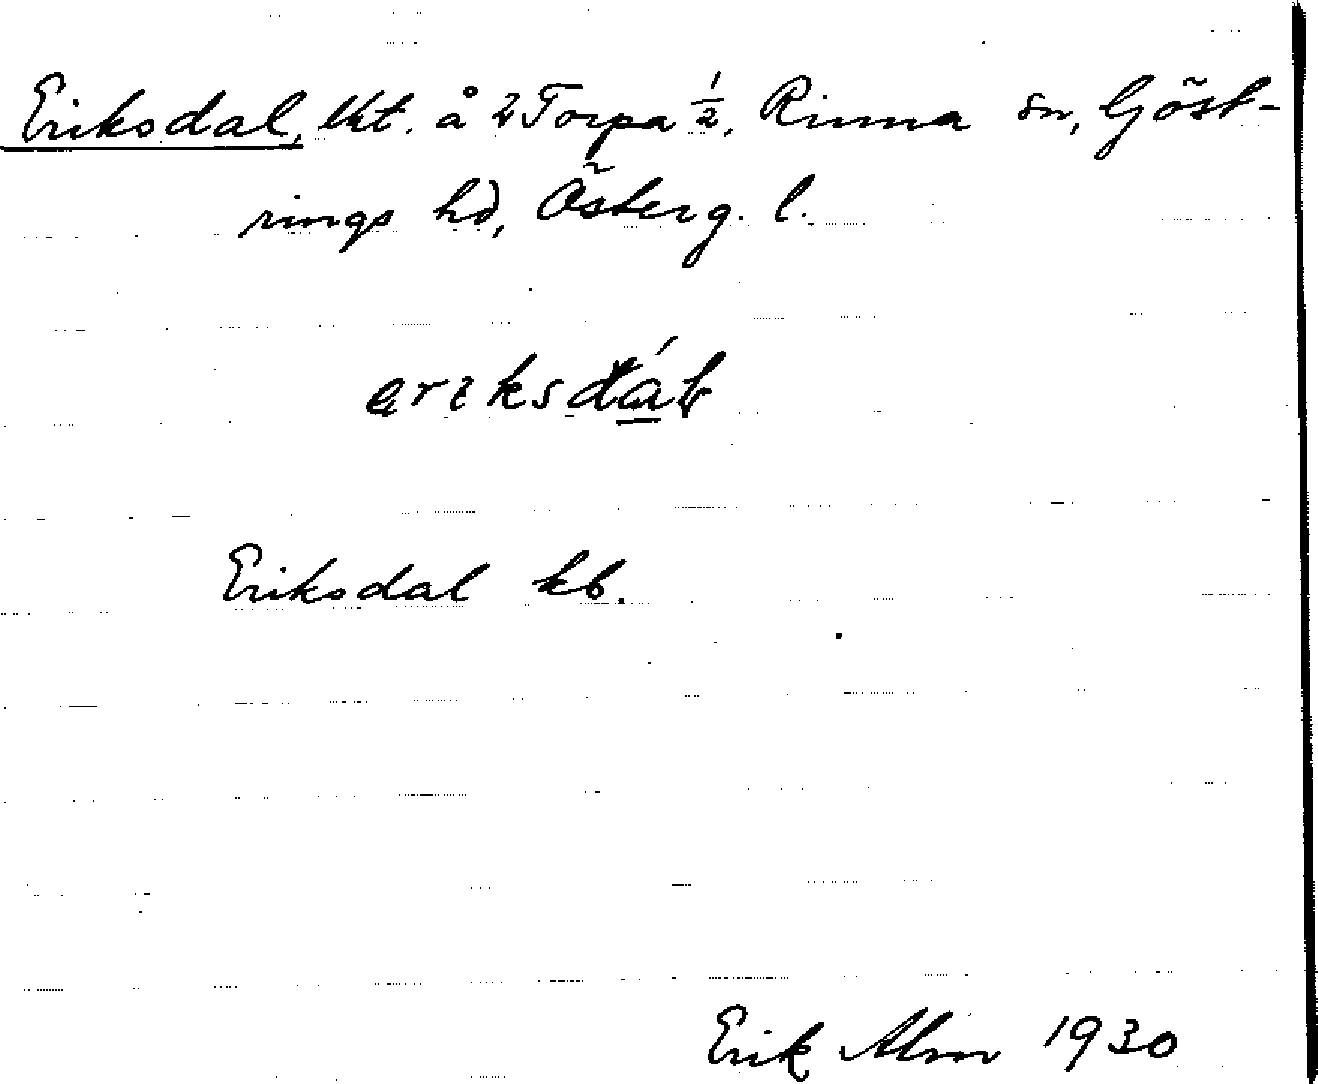 Eriksdal, lkt. å Torpa ½, Rinna sn, Göst-
rings hd, Österg. l.
eriksdáƚ
Eriksdal kb.
Erik Alm 1930